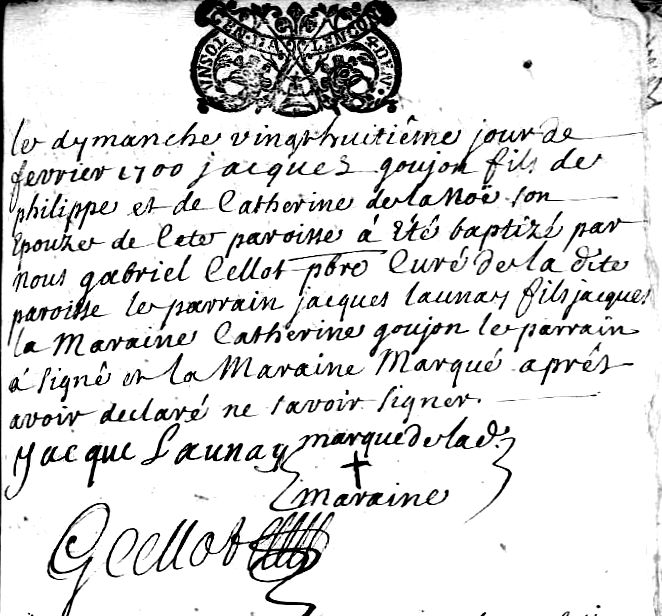 GEN·D'ALENCON
VNSOL 4DEN.
le dymanche vingthuitiême jour de
fevrier 1700 jacques goujon fils de
philippe et de Catherine de la Noë son
Epouze de Cete paroisse á Eté baptizé par
Nous gabriel Cellot pbre Curé de la dite
paroisse le parrain jacques launay fils jacques
la Maraine Catherine goujon le parrain
á signé et la Maraine Marqué aprês
avoir declaré ne savoir signer.
Jacque Launay marque de la d.
maraine
GCellot